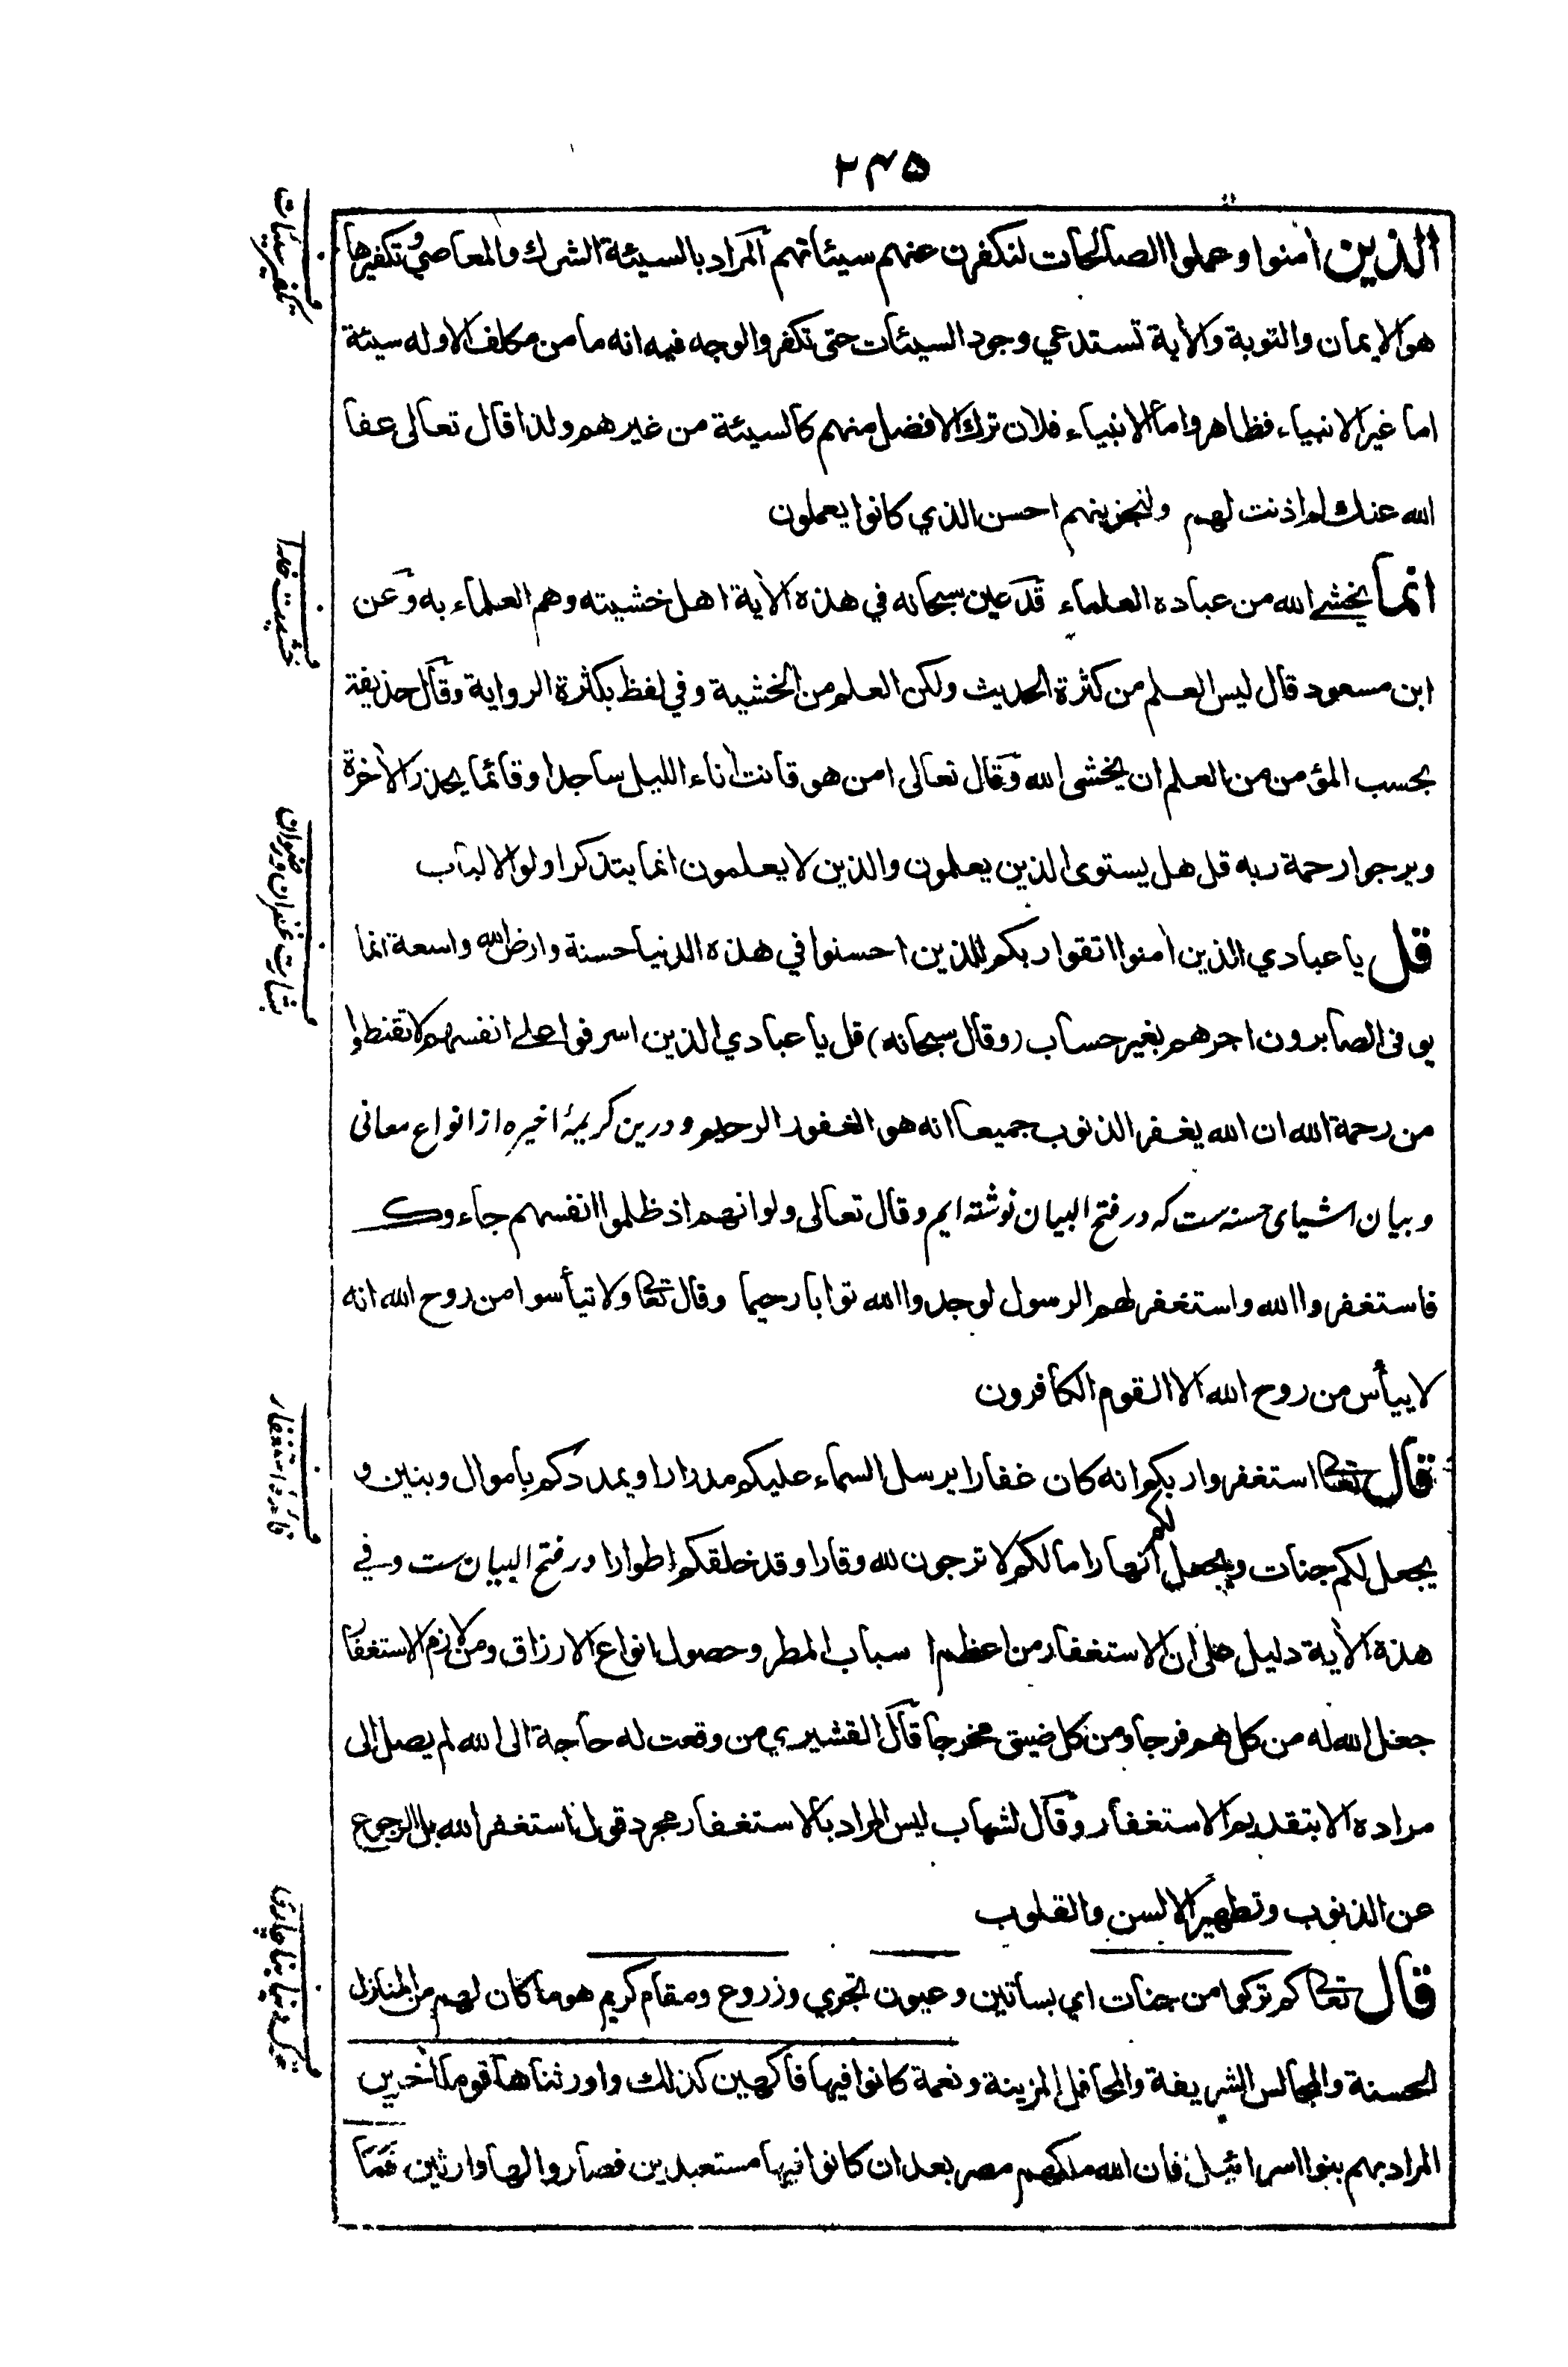 ۲۴۵
الذين اٰمنوا وعملوا الصالحات لنكفرن عنهم سيئاتهم المراد بالسيئة الشرك والمعاصي وتكفيرها
تكفير سيئات
هو الايمان والتوبة والاٰية تستدعي وجود السيئات حتى تكفر والوجه فيه انه ما من مكلف الا وله سيئة
اما غير الانبياء فظاهر واما الانبياء فلان ترك الافضل منهم كالسيئة من غيرهم ولذا قال تعالى عفا
الله عنك لم اذنت لهم ولنجزينهم احسن الذي كانوا يعملون
انما يخشے الله من عباده العلماء قد عين سبحانه في هذه الاٰية اهل خشيته وهم العلماء به وعن
خشيت خدا
ابن مسعود قال ليس العلم من كثرة الحديث ولكن العلم من الخشية وفي لفظ بكثرة الرواية وقال حذيفة
بحسب المؤمن من العلم ان يخشى الله وقال تعالى امن هو قانت اٰناء الليل ساجدا وقائما يحذر الاٰخرة
ويرجوا رحمة ربه قل هل يستوى الذين يعلمون والذين لا يعلمون انما يتذكر اولوا الالباب
بشارت غفران ورضوان
قل يا عبادي الذين اٰمنوا اتقوا ربكم للذين احسنوا في هذه الدنيا حسنة وارض الله واسعة انما
يوفى الصابرون اجرهم بغير حساب (وقال سبحانه) قل يا عبادي الذين اسرفوا علے انفسهم لا تقنطوا
من رحمة الله ان الله يغفر الذنوب جميعا انه هو الغفور الرحيم ودرين كريمۀ اخيره از انواع معانى
وبيان اشياى حسنه ست كه در فتح البيان نوشته ايم وقال تعالى ولو انهم اذ ظلموا انفسهم جاءوك
فاستغفروا الله واستغفر لهم الرسول لوجدوا الله توابا رحيما وقال تعا ولا تيأسوا من روح الله انه
لا ييأس من روح الله الا القوم الكافرون
فائده استغفار
قال تعا استغفروا ربكم انه كان غفارا يرسل السماء عليكم مدرارا ويمددكم باموال وبنين و
يجعل لكم جنات ويجعل لكم انهارا ما لكم لا ترجون لله وقارا وقد خلقكم اطوارا در فتح البيان ست وفي
هذه الاٰية دليل على ان الاستغفار من اعظم اسباب المطر وحصول انواع الارزاق ومن لازم الاستغفا
جعل الله له من كل هم فرجا ومن كل ضيق مخرجا قال القشيري من وقعت له حاجة الى الله لم يصل الى
مراده الا بتقديم الاستغفار وقال الشهاب ليس المراد بالاستغفار مجرد قول استغفر الله بل الرجوع
عن الذنوب وتطهير الالسن والقلوب
قال تعا كم تركوا من جنات اي بساتين وعيون تجري وزروع ومقام كريم هو ما كان لهم من المنازل
الحسنة والمجالس الشريفة والمحافل المزينة ونعمة كانوا فيها فاكهين كذلك واورثناها قوما اٰخرين
المراد بهم بنوا اسرائيل فان الله ملكهم مصر بعد ان كانوا فيها مستعبدين فصاروا لها وارثين فما